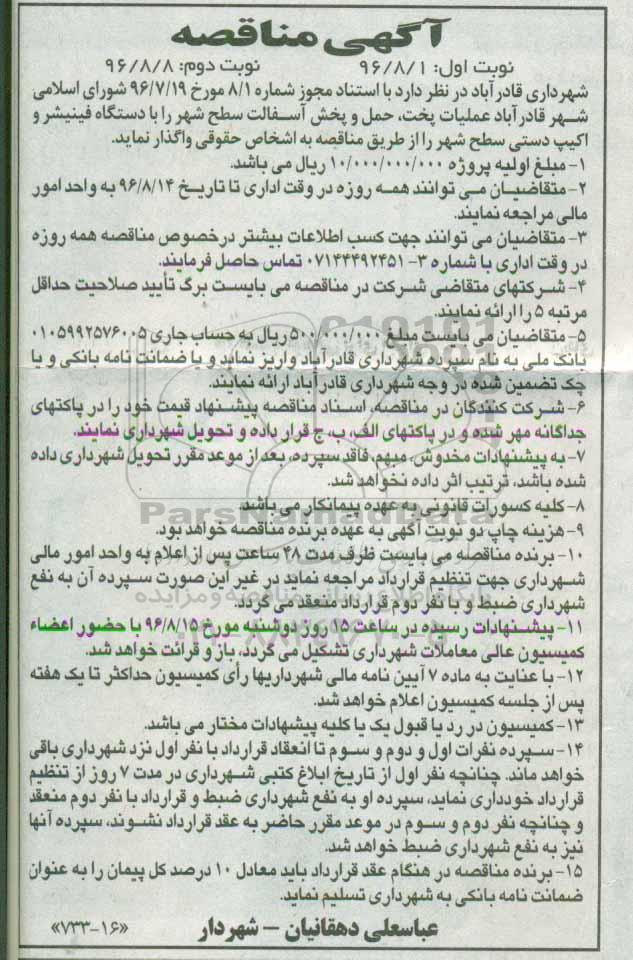 آگهی مناقصه
نوبت اول: ۹۶/۸/۱ نوبت دوم: ۹۶/۸/۸
شهرداری قادرآباد در نظر دارد با استناد مجوز شماره ۸/۱ مورخ ۹۶/۷/۱۹ شورای اسلامی
شهر قادرآباد عملیات پخت، حمل و پخش آسفالت سطح شهر را با دستگاه فینیشر و
اکیپ دستی سطح شهر را از طریق مناقصه به اشخاص حقوقی واگذار نماید.
۱- مبلغ اولیه پروژه ۱۰/۰۰۰/۰۰۰/۰۰۰ ریال می باشد.
۲- متقاضیان می توانند همه روزه در وقت اداری تا تاریخ ۹۶/۸/۱۴ به واحد امور
مالی مراجعه نمایند.
۳- متقاضیان می توانند جهت کسب اطلاعات بیشتر درخصوص مناقصه همه روزه
در وقت اداری با شماره ۳-۰۷۱۴۴۴۹۲۴۵۱ تماس حاصل فرمایند.
۴- شرکتهای متقاضی شرکت در مناقصه می بایست برگ تأیید صلاحیت حداقل
مرتبه ۵ را ارائه نمایند.
۵- متقاضیان می بایست مبلغ ۵۰۰/۰۰۰/۰۰۰ ریال به حساب جاری ۰۱۰۵۹۹۲۵۷۶۰۰۵
بانک ملی به نام سپرده شهرداری قادرآباد واریز نماید و یا ضمانت نامه بانکی و یا
چک تضمین شده در وجه شهرداری قادرآباد ارائه نمایند.
۶- شرکت کنندگان در مناقصه، اسناد مناقصه پیشنهاد قیمت خود را در پاکتهای
جداگانه مهر شده و در پاکتهای الف، ب، ج قرار داده و تحویل شهرداری نمایند.
۷- به پیشنهادات مخدوش، مبهم، فاقد سپرده، بعد از موعد مقرر تحویل شهرداری داده
شده باشد، ترتیب اثر داده نخواهد شد.
۸- کلیه کسورات قانونی به عهده پیمانکار می باشد.
۹- هزینه چاپ دو نوبت آگهی به عهده برنده مناقصه خواهد بود.
۱۰- برنده مناقصه می بایست ظرف مدت ۴۸ ساعت پس از اعلام به واحد امور مالی
شهرداری جهت تنظیم قرارداد مراجعه نماید در غیر این صورت سپرده آن به نفع
شهرداری ضبط و با نفر دوم قرارداد منعقد می گردد.
۱۱- پیشنهادات رسیده در ساعت ۱۵ روز دوشنبه مورخ ۹۶/۸/۱۵ با حضور اعضاء
کمیسیون عالی معاملات شهرداری تشکیل می گردد، باز و قرائت خواهد شد.
۱۲- با عنایت به ماده ۷ آیین نامه مالی شهرداریها رأی کمیسیون حداکثر تا یک هفته
پس از جلسه کمیسیون اعلام خواهد شد.
۱۳- کمیسیون در رد یا قبول یک یا کلیه پیشهادات مختار می باشد.
۱۴- سپرده نفرات اول و دوم و سوم تا انعقاد قرارداد با نفر اول نزد شهرداری باقی
خواهد ماند. چنانچه نفر اول از تاریخ ابلاغ کتبی شهرداری در مدت ۷ روز از تنظیم
قرارداد خودداری نماید، سپرده او به نفع شهرداری ضبط و قرارداد با نفر دوم منعقد
و چنانچه نفر دوم و سوم در موعد مقرر حاضر به عقد قرارداد نشوند، سپرده آنها
نیز به نفع شهرداری ضبط خواهد شد.
۱۵- برنده مناقصه در هنگام عقد قرارداد باید معادل ۱۰ درصد کل پیمان را به عنوان
ضمانت نامه بانکی به شهرداری تسلیم نماید.
عباسعلی دهقانیان - شهردار «۷۳۳-۱۶»
ParsNamadData